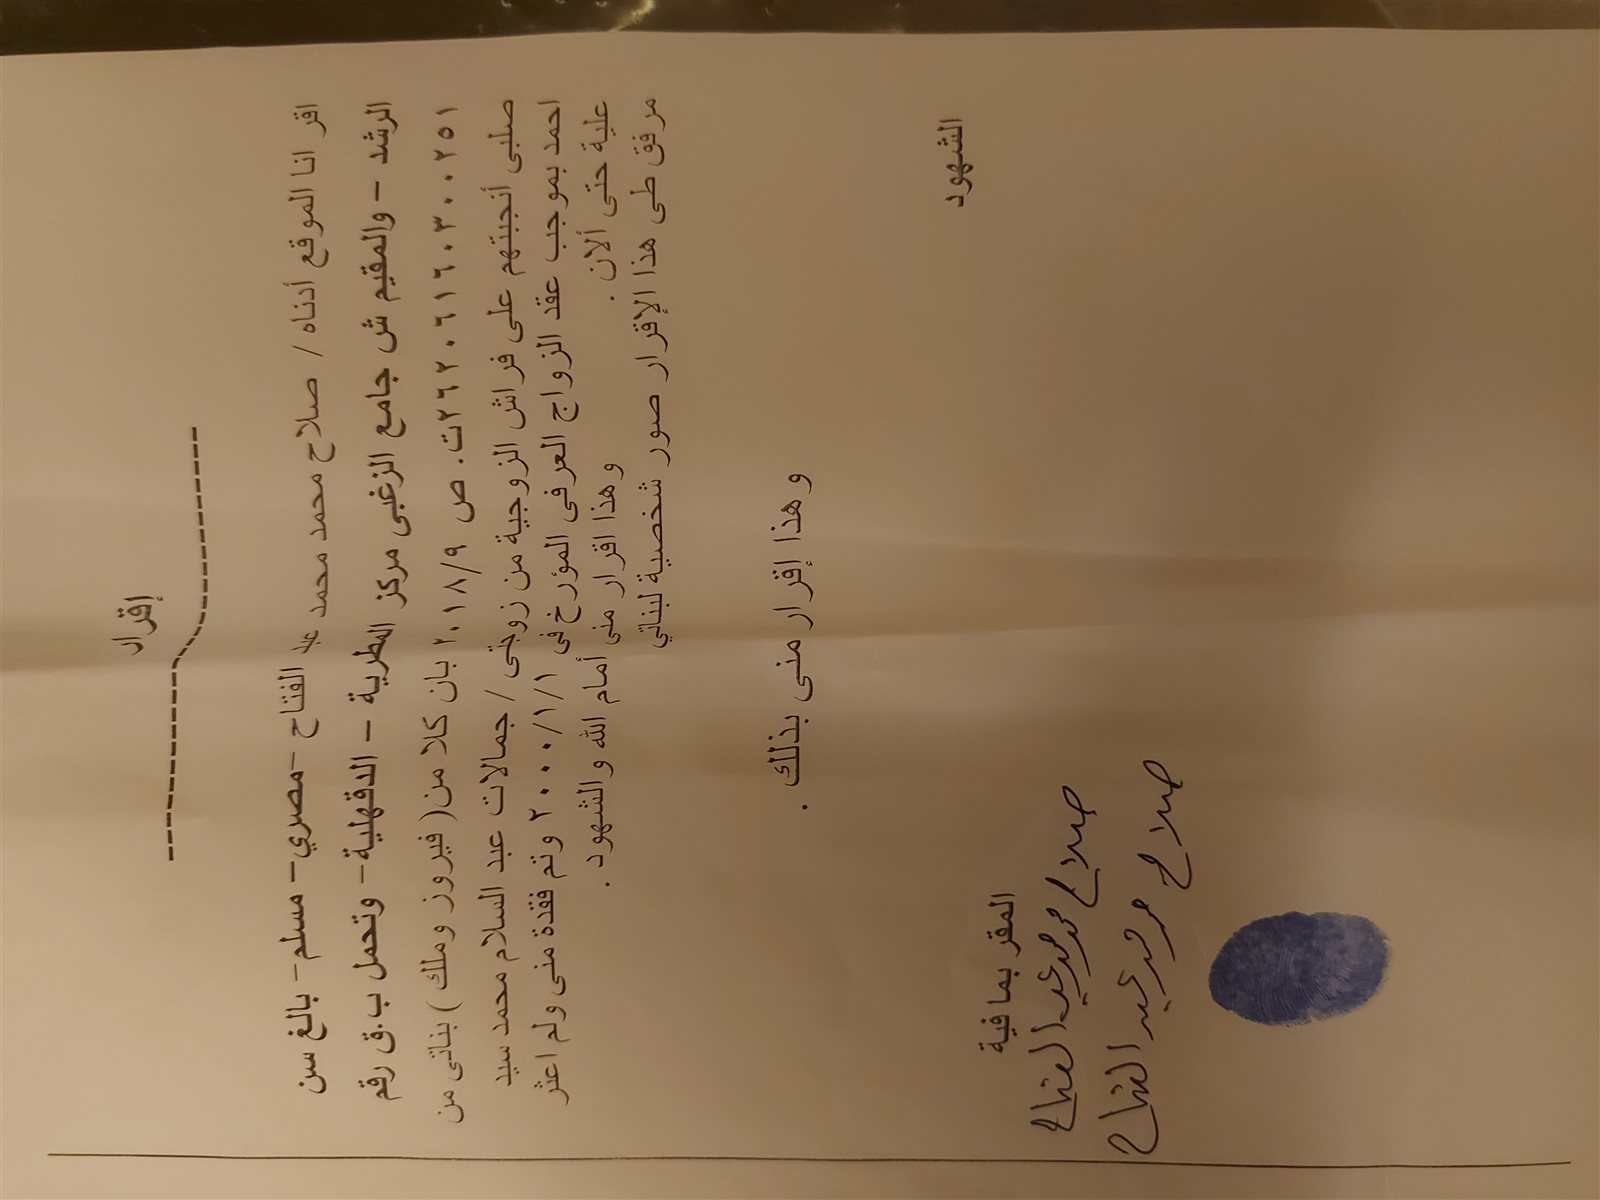 إقرار
اقر انا الموقع أدناه / صلاح محمد محمد عبد الفتاح –مصري– مسلم– بالغ سن
الرشد –والمقيم ش جامع الزغبى مركز المطرية – الدقهلية– وتحمل ب.ق رقم
٢٦٢٠٦١٦٠٣٠٠٢٥١ت. ص ٢٠١٨/٩ بان كلا من( فيروز وملك ) بناتى من
صلبى أنجبتهم على فراش الزوجية من زوجتى / جمالات عبد السلام محمد سيد
احمد بموجب عقد الزواج العرفى المؤرخ فى ٢٠٠٠/١/١ وتم فقدة منى ولم اعثر
علية حتى ألان .
وهذا اقرار منى أمام الله والشهود .
مرفق طى هذا الإقرار صور شخصية لبناتي
وهذا إقرار منى بذلك .
الشهود
المقر بما فية
صلاح محمد محمد عبد الفتاح
صلاح محمد محمد عبد الفتاح